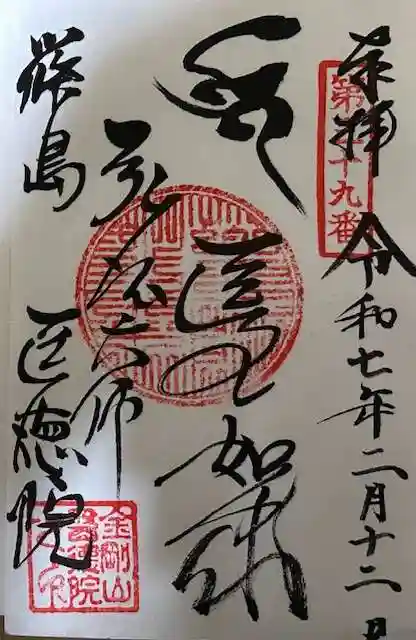 奉拝 令和七年二月十二日
第三十九番
如来
弘法大師
篠島 医徳院
金剛山
医徳院
之印